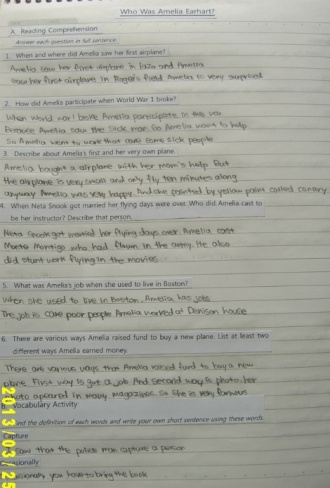 Who Was Amelia Earhart?
A. Reading Comprehension
Answer each question in full sentence.
1. When and where did Amelia saw her first airplane?
Amelia saw her first airplane in and Amelia
saw her first airplane in Roger's field Amelia is very surprised
2. How did Amelia participate when World War 1 broke?
When world war 1 broke Amelia participate in the war
Because Amelia saw the sick man So Amelia want to help
So Amelia went to work that care some sick people
3. Describe about Amelia's first and her very own plane.
Amelia bought a airplane with her mom's help But
the airplane is very small and only fly ten minutes along
anyway Amelia was very happy. And she painted by yellow paint called canary.
4. When Neta Snook got married her flying days were over. Who did Amelia cast to
be her instructor? Describe that person.
Neta Snook got married her flying days over Amelia cast
Monte Montijo who had flown in the army. He also
did stunt work flying in the movies
5. What was Amelia's job when she used to live in Boston?
When she used to live in Boston, Amelia has jobs
The job is care poor people Amelia worked at Denison house
6. There are various ways Amelia raised fund to buy a new plane. List at least two
different ways Amelia earned money.
There are various ways that Amelia raised fund to buy a new
plane First way is got a job And second way is photo her
photo apeared in many magazines. So she is very famous
Vocabulary Activity
ind the definition of each words and write your own short sentence using these words.
Capture
saw that the police man capture a person
sionally
sionally you have to bring the book
2013/03/25